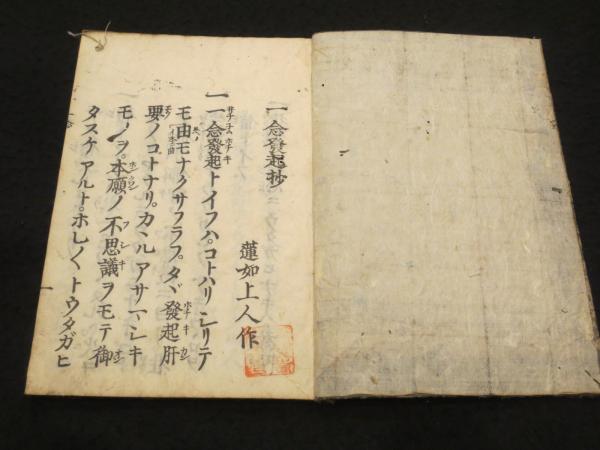 一念發起抄
蓮如上人作
一一念發起トイフハ。コトハリトシリテ
モ由モナクサフラフ。タヾ發起肝
要ノコトナリ。カヽルアサマシキ
モノヲ。本願ノ不思議ヲモテ御
タスケアルト。ホレ〳〵トウタガヒ